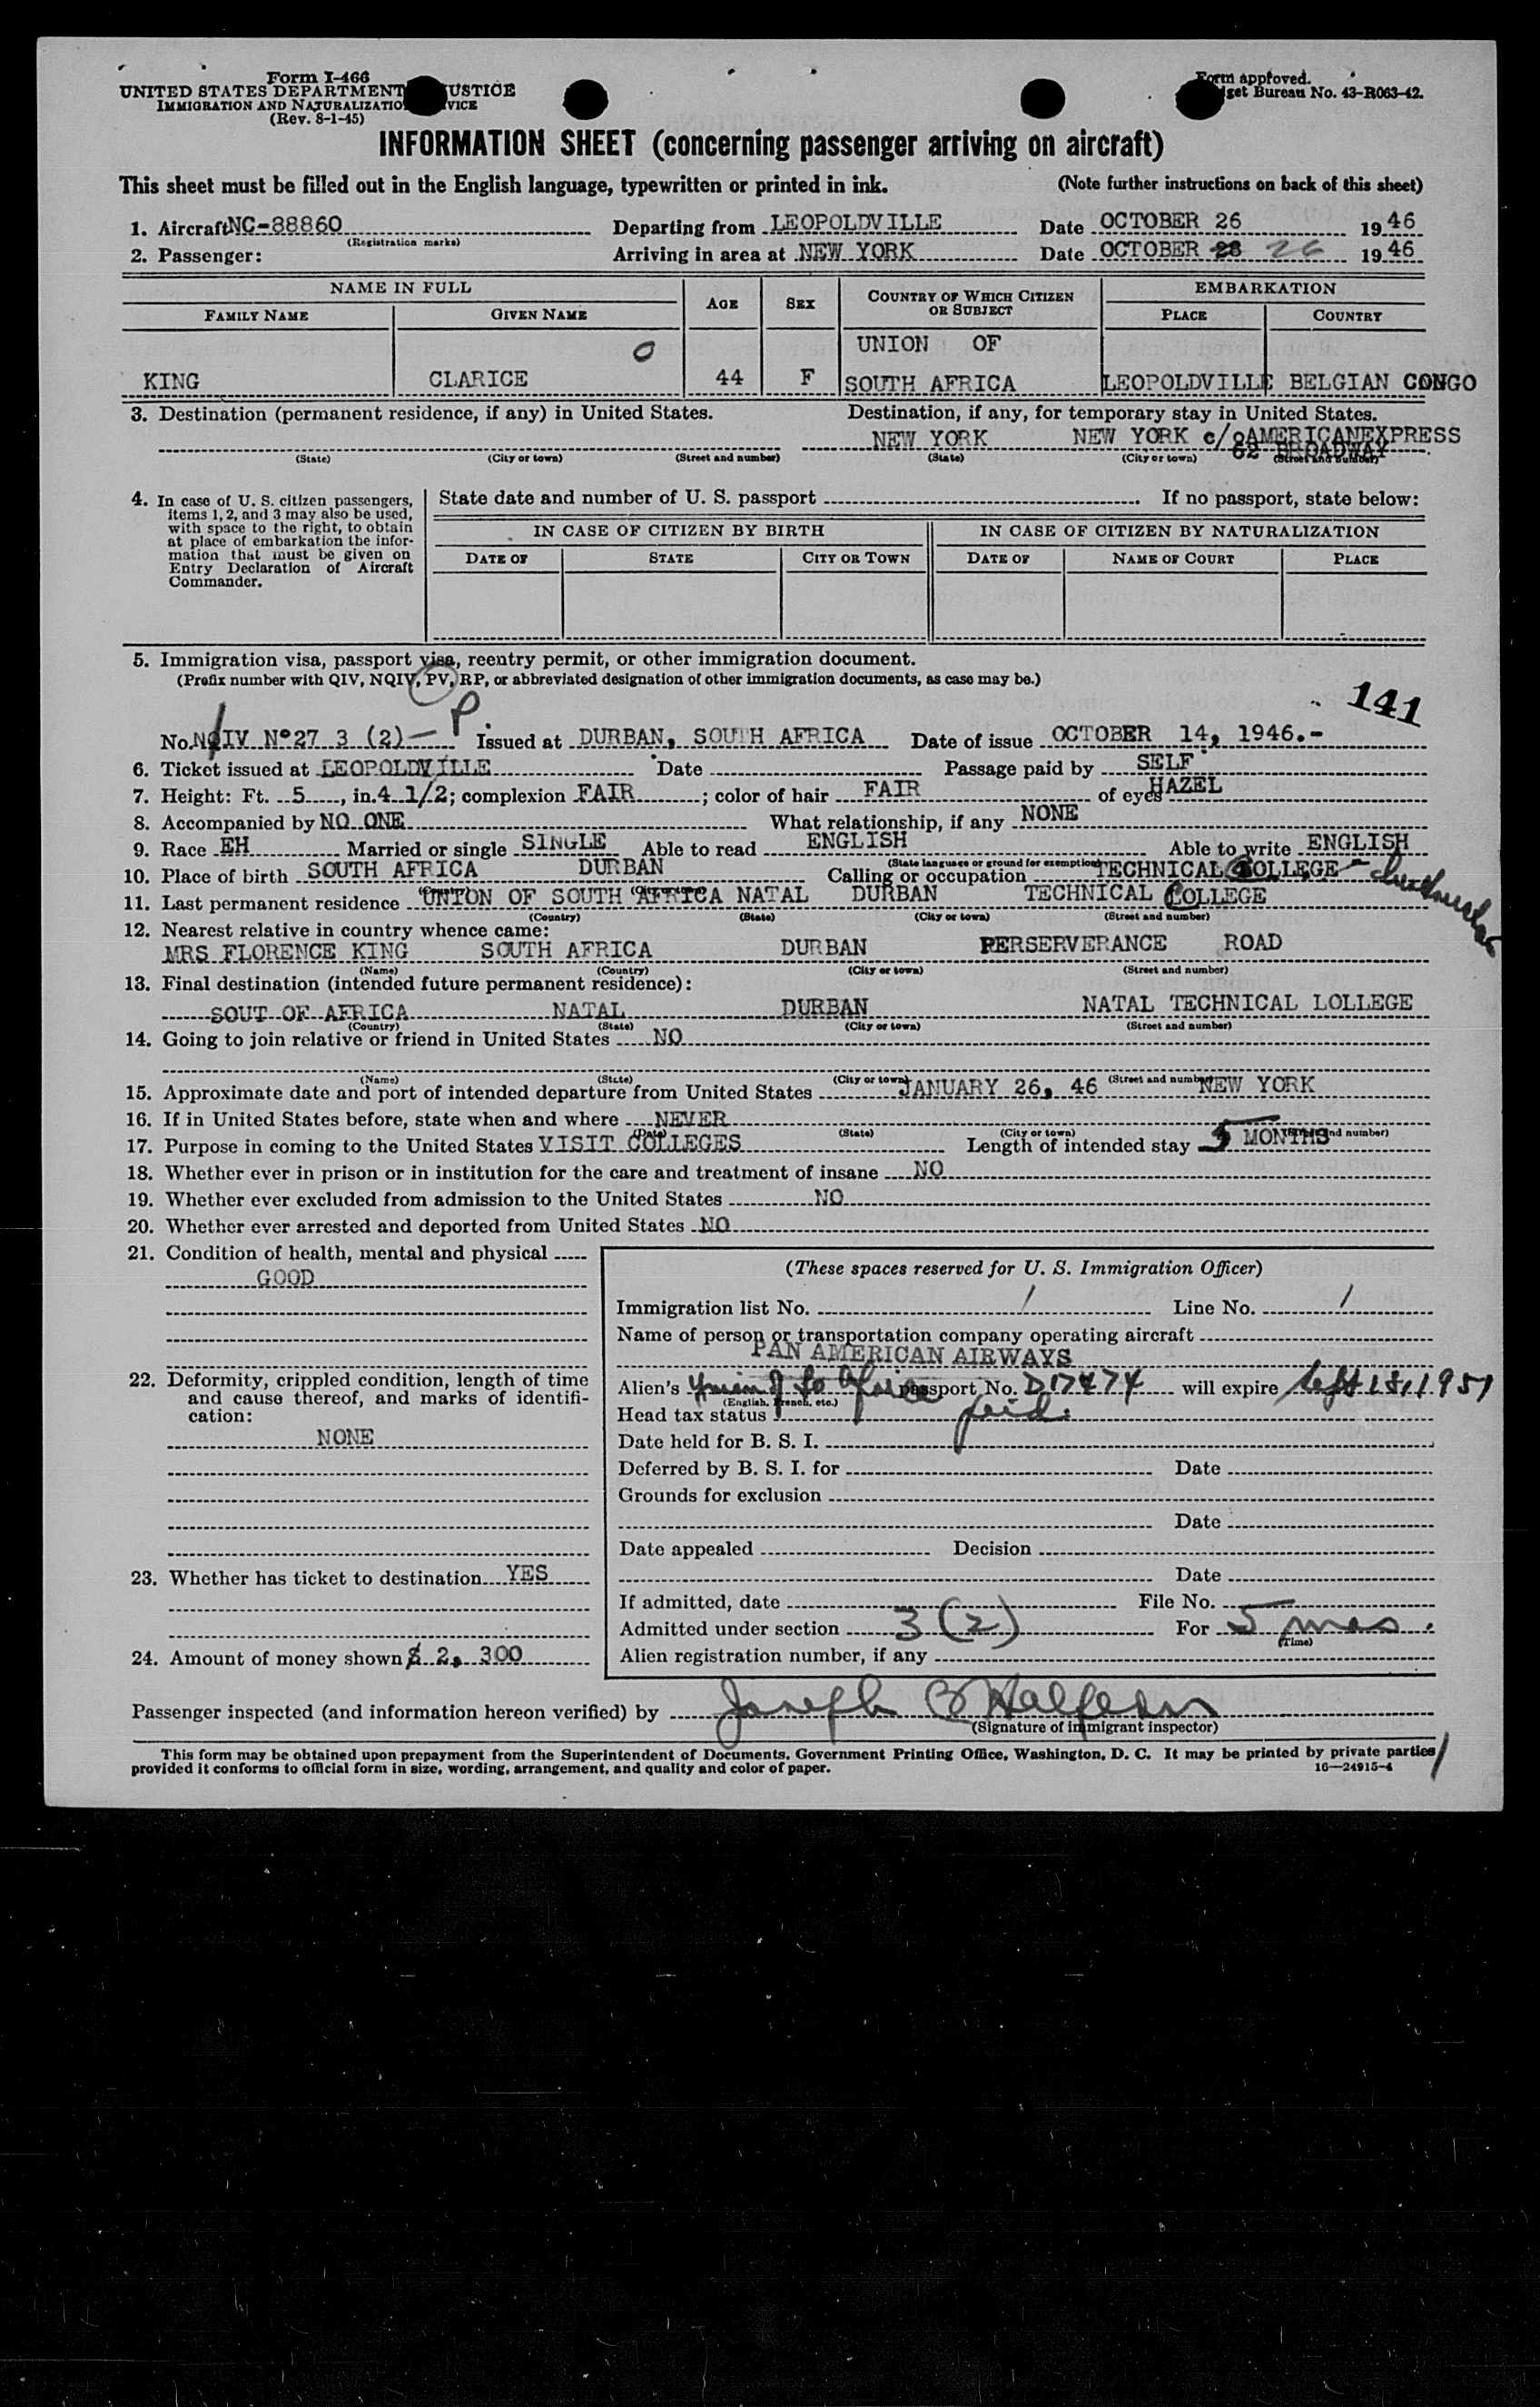 Form I-466
UNITED STATES DEPARTMENT USTICE
IMMIGRATION AND NATURALIZATIO VICE
(Rev. 8-1-45)
Form approved.
get Bureau No. 43-R063-42.
INFORMATION SHEET (concerning passenger arriving on aircraft)
This sheet must be filled out in the English language, typewritten or printed in ink. (Note further instructions on back of this sheet)
1. Aircraft NC-88860 Departing from LEOPOLDVILLE Date OCTOBER 26 1946
(Registration marks)
2. Passenger: Arriving in area at NEW YORK Date OCTOBER 28 26 1946
NAME IN FULL AGE SEX COUNTRY OF WHICH CITIZEN OR SUBJECT EMBARKATION
FAMILY NAME GIVEN NAME PLACE COUNTRY
0 UNION OF
KING CLARICE 44 F SOUTH AFRICA LEOPOLDVILLE BELGIAN CONGO
3. Destination (permanent residence, if any) in United States. Destination, if any, for temporary stay in United States.
NEW YORK NEW YORK c/o AMERICANEXPRESS
62 BROADWAY
(State) (City or town) (Street and number) (State) (City or town) (Street and number)
4. In case of U. S. citizen passengers, items 1, 2, and 3 may also be used, with space to the right, to obtain at place of embarkation the information that must be given on Entry Declaration of Aircraft Commander.
State date and number of U. S. passport If no passport, state below:
IN CASE OF CITIZEN BY BIRTH IN CASE OF CITIZEN BY NATURALIZATION
DATE OF STATE CITY OR TOWN DATE OF NAME OF COURT PLACE
5. Immigration visa, passport visa, reentry permit, or other immigration document.
(Prefix number with QIV, NQIV, PV, RP, or abbreviated designation of other immigration documents, as case may be.)
141
P
No. NQIV Nº27 3 (2) Issued at DURBAN, SOUTH AFRICA Date of issue OCTOBER 14, 1946.-
6. Ticket issued at LEOPOLDVILLE Date Passage paid by SELF
7. Height: Ft. 5, in. 4 1/2; complexion FAIR; color of hair FAIR of eyes HAZEL
8. Accompanied by NO ONE What relationship, if any NONE
9. Race EH Married or single SINGLE Able to read ENGLISH Able to write ENGLISH
(State language or ground for exemption)
10. Place of birth SOUTH AFRICA DURBAN Calling or occupation TECHNICAL COLLEGE
11. Last permanent residence UNION OF SOUTH AFRICA NATAL DURBAN TECHNICAL COLLEGE
(Country) (State) (City or town) (Street and number)
12. Nearest relative in country whence came:
MRS FLORENCE KING SOUTH AFRICA DURBAN PERSERVERANCE ROAD
(Name) (Country) (City or town) (Street and number)
13. Final destination (intended future permanent residence):
SOUT OF AFRICA NATAL DURBAN NATAL TECHNICAL LOLLEGE
(Country) (State) (City or town) (Street and number)
14. Going to join relative or friend in United States NO
(Name) (State) (City or town) (Street and number)
15. Approximate date and port of intended departure from United States JANUARY 26, 46 NEW YORK
16. If in United States before, state when and where NEVER
(Date) (State) (City or town) (Street and number)
17. Purpose in coming to the United States VISIT COLLEGES Length of intended stay 5 MONTHS
18. Whether ever in prison or in institution for the care and treatment of insane NO
19. Whether ever excluded from admission to the United States NO
20. Whether ever arrested and deported from United States NO
21. Condition of health, mental and physical
GOOD
22. Deformity, crippled condition, length of time and cause thereof, and marks of identification:
NONE
23. Whether has ticket to destination YES
24. Amount of money shown $ 2, 300
(These spaces reserved for U. S. Immigration Officer)
Immigration list No. 1 Line No. 1
Name of person or transportation company operating aircraft
PAN AMERICAN AIRWAYS
Alien's Union of So Africa passport No. D17474 will expire Sept 18, 1951
(English, French, etc.)
Head tax status paid.
Date held for B. S. I.
Deferred by B. S. I. for Date
Grounds for exclusion
Date
Date appealed Decision
Date
If admitted, date File No.
Admitted under section 3(2) For 5 mos.
(Time)
Alien registration number, if any
Passenger inspected (and information hereon verified) by Joseph B Halpern
(Signature of immigrant inspector)
This form may be obtained upon prepayment from the Superintendent of Documents, Government Printing Office, Washington, D. C. It may be printed by private parties
provided it conforms to official form in size, wording, arrangement, and quality and color of paper. 16—24915-4